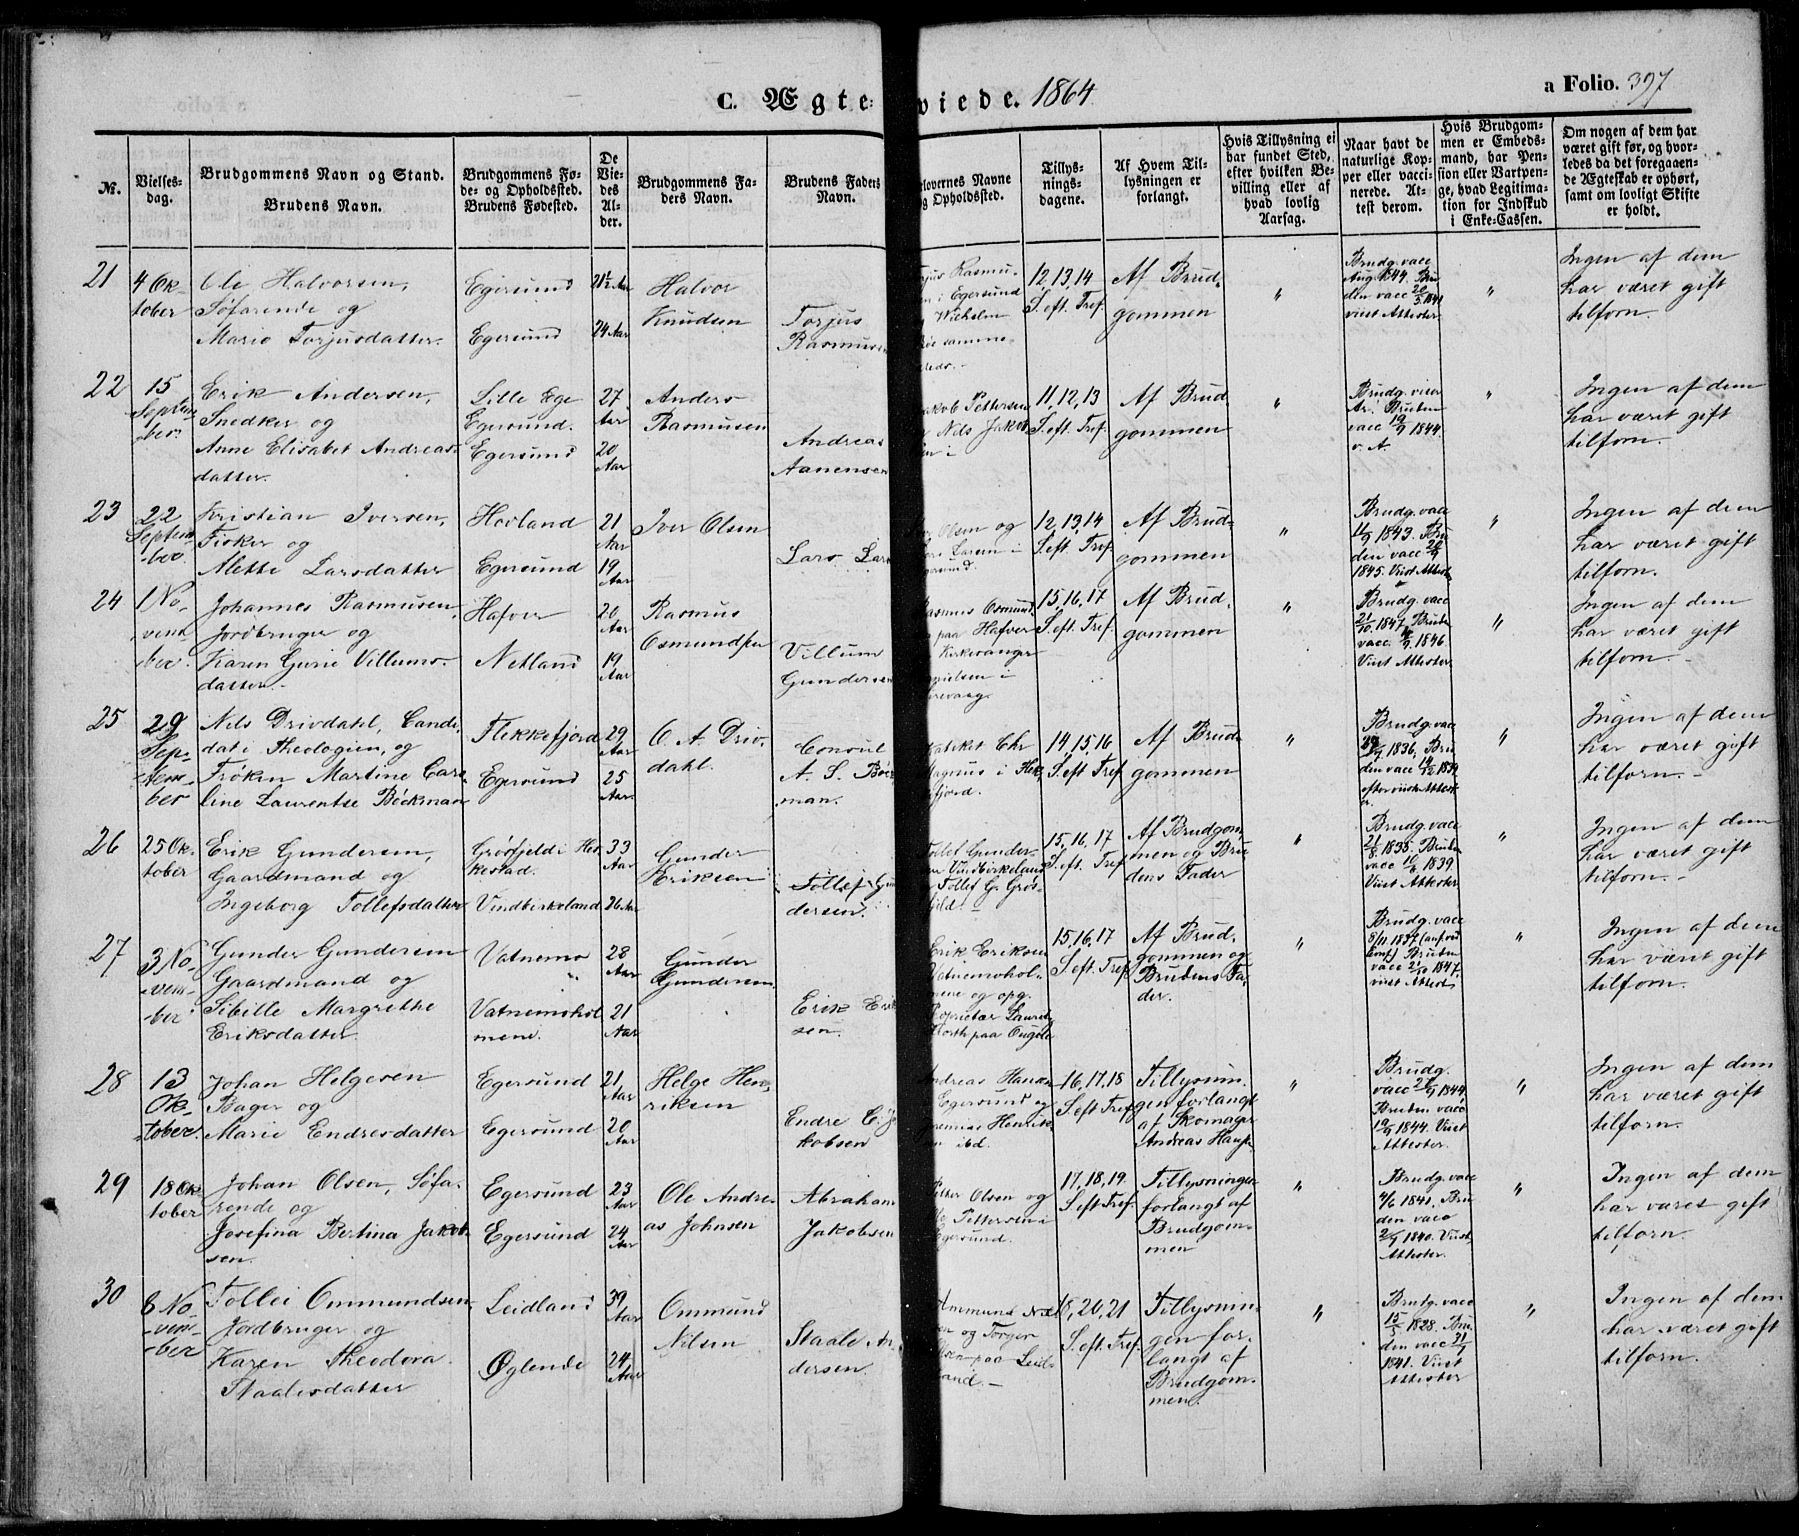 C. Ægte- viede. 1864
a Folio. 397
№.
Vielses-
dag.
Brudgommens Navn og Stand.
Brudens Navn.
Brudgommens Fø-
de- og Opholdssted.
Brudens Fødested.
De
Vie-
des
Al-
der.
Brudgommens Fa-
ders Navn.
Brudens Faders
Navn.
lovernes Navne
g Opholdssted.
Tillys-
nings-
dagene.
Af Hvem Til-
lysningen er
forlangt.
Hvis Tillysning ei
har fundet Sted,
efter hvilken Be-
villing eller af
hvad lovlig
Aarsag.
Naar havt de
naturlige Kop-
per eller vacci-
nerede. At-
test derom.
Hvis Brudgom-
men er Embeds-
mand, har Pen-
sion eller Vartpen-
ge, hvad Legitima-
tion for Indskud
i Enke-Cassen.
Om nogen af dem har
været gift før, og hvor-
ledes da det foregaaen-
de Ægteskab er ophørt,
samt om lovligt Skifte
er holdt.
21
4 Ok-
tober
Ole Halvorsen,
Søfarende og
Marie Torjusdatter.
Egersund
Egersund
21½ Aar
24 Aar
Halvor
Knudsen
Torjus
Rasmusen
Rasmu-
i Egersund
Wilhelm
samme-
12, 13, 14
S. eft. Tref.
Af Brud-
gommen
"
Brudg. vacc
Aug. 1844. Bru
den vacc
viist Attester
"
Ingen af dem
har været gift
tilforn.
22
15
Septem-
ber.
Erik Andersen,
Snedker og
Anne Elisabet Andreas-
datter.
Lille Ege
Egersund.
Egersund
27
Aar
20
Aar
Anders
Rasmusen
Andreas
Aanensen
akob Pettersen
Nils Jakob
11, 12, 13
S. eft. Tref.
Af Brud
gommen
"
Brudg. viser
Ar. Bruden
vacc 19/9 1844.
v. A.
"
Ingen af dem
har været gift
tilforn.
23
22
Septem-
ber.
Kristian Iversen,
Fisker og
Mette Larsdatter
Hovland
Egersund
21
Aar
19
Aar
Iver Olsen
Lars Lar
Olsen og
Larsen i
12, 13, 14
S. eft. Tref.
Af Brud-
gommen
"
Brudg. vacc
1843. Bru
den vacc
1845. Viist Attester
"
Ingen af dem
har været gift
tilforn.
24
1 No-
vem
ber.
Johannes Rasmusen,
Jordbruger og
Karen Gurie Villums-
datter.
Hafver
Netland
20
Aar
19
Aar
Rasmus
Osmundsen
Villum
Gundersen
asmus Osmund
paa Hafver
15, 16, 17
S. eft. Tref.
Af Brud-
gommen
"
Brudg. vacc
21/10 1847, Bruden
vacc. 1846.
Viist Attester.
"
Ingen af dem
har været gift
tilforn.
25
29
Sep-
tem-
ber
Nils Drivdahl, Candi-
dat i Theologien, og
Frøken Martine Caro
line Laurentse Böckman
Flekkefjord
Egersund
29
Aar
25
Aar.
O. A. Driv-
dahl.
Consul
A. S. Böck
man.
Chr
Magnus i
fjord.
14, 15, 16
S. eft Tref
Af Brud
gommen
"
Brudg. vacc
1836, Bru
den vacc 1839
"
Ingen af dem
har været gift
tilforn.
26
25 Ok-
tober
Erik Gundersen,
Gaardmand og
Ingeborg Tollefsdatter
Grøsfjeld i Hes-
kestad.
Vindbirkeland
33
Aar
26 Aar
Gunder
Eriksen
Tollef Gun
dersen.
ollef Gunder-
Vindbirkeland
Tollef G. Grøs-
15, 16, 17
S. eft. Tref
Af Brudgom-
men og Bru
dens Fader
"
Brudg. vacc
21/8 1838. Bruden
vacc 1839.
Viist Attester
"
Ingen af dem
har været gift
tilforn.
27
3 No-
vem-
ber
Gunder Gundersen
Gaardmand og
Sibille Margrethe
Eriksdatter.
Vatnemo
Vatnemohol
mene.
28
Aar
21
Aar
Gunder
Gundersen
Erik Erik
sen.
Erik Eriksen
Vatnemohol-
mene og opg.
Proprietær Laurits
15, 16, 17
S. eft. Tref.
Af Brud-
gommen og
Brudens Fa-
der.
"
Brudg. vacc
8/11 1837 (anf. ved
Conf.) Bruden
vacc 1847.
viist Attester
"
Ingen af dem
har været gift
tilforn.
28
13
Ok-
tober.
Johan Helgesen
Bager og
Marie Endresdatter
Egersund
Egersund
21
Aar
20
Aar
Helge Hen-
riksen
Endre C. Ja
kobsen
Andreas Hansen
Egersund og
Henrik
ibd.
16, 17, 18
S. eft Tref.
Tillysnin-
gen forlangt
af Skomager
Andreas Hansen
"
Brudg.
vacc 1844,
Bruden vacc
19/9 1844. Viist
Attester.
"
Ingen af dem
har været gift
tilforn.
29
18 Ok-
tober
Johan Olsen, Søfa-
rende og
Josefina Bertina Jakob-
sen.
Egersund
Egersund
23
Aar
24
Aar
Ole Andre-
as Johnsen
Abraham
Jakobsen
Petter Olsen og
Pettersen i
Egersund.
17, 18, 19
S. eft Tref.
Tillysningen
forlangt af
Brudgom-
men
"
Brudg. vacc
4/6 1841. Bru
den vacc
1840. Viist
Attester.
"
Ingen af dem
har været gift
tilforn.
30
8 No-
vem-
ber
Tollei Ommundsen,
Jordbruger og
Karen Theodora
Staalesdatter
Leidland
Øglende
39
Aar
24
Aar
Ommund
Nilsen
Staale An
dersen.
Ommund
og Torger
paa Leid-
land.
20, 21
S. eft. Tref.
Tillysnin-
gen for-
langt af
Brudgom-
men.
"
Brudg. vacc
1828. Bru
den vacc
1841. Viist
Attester
"
Ingen af dem
har været gift
tilforn.